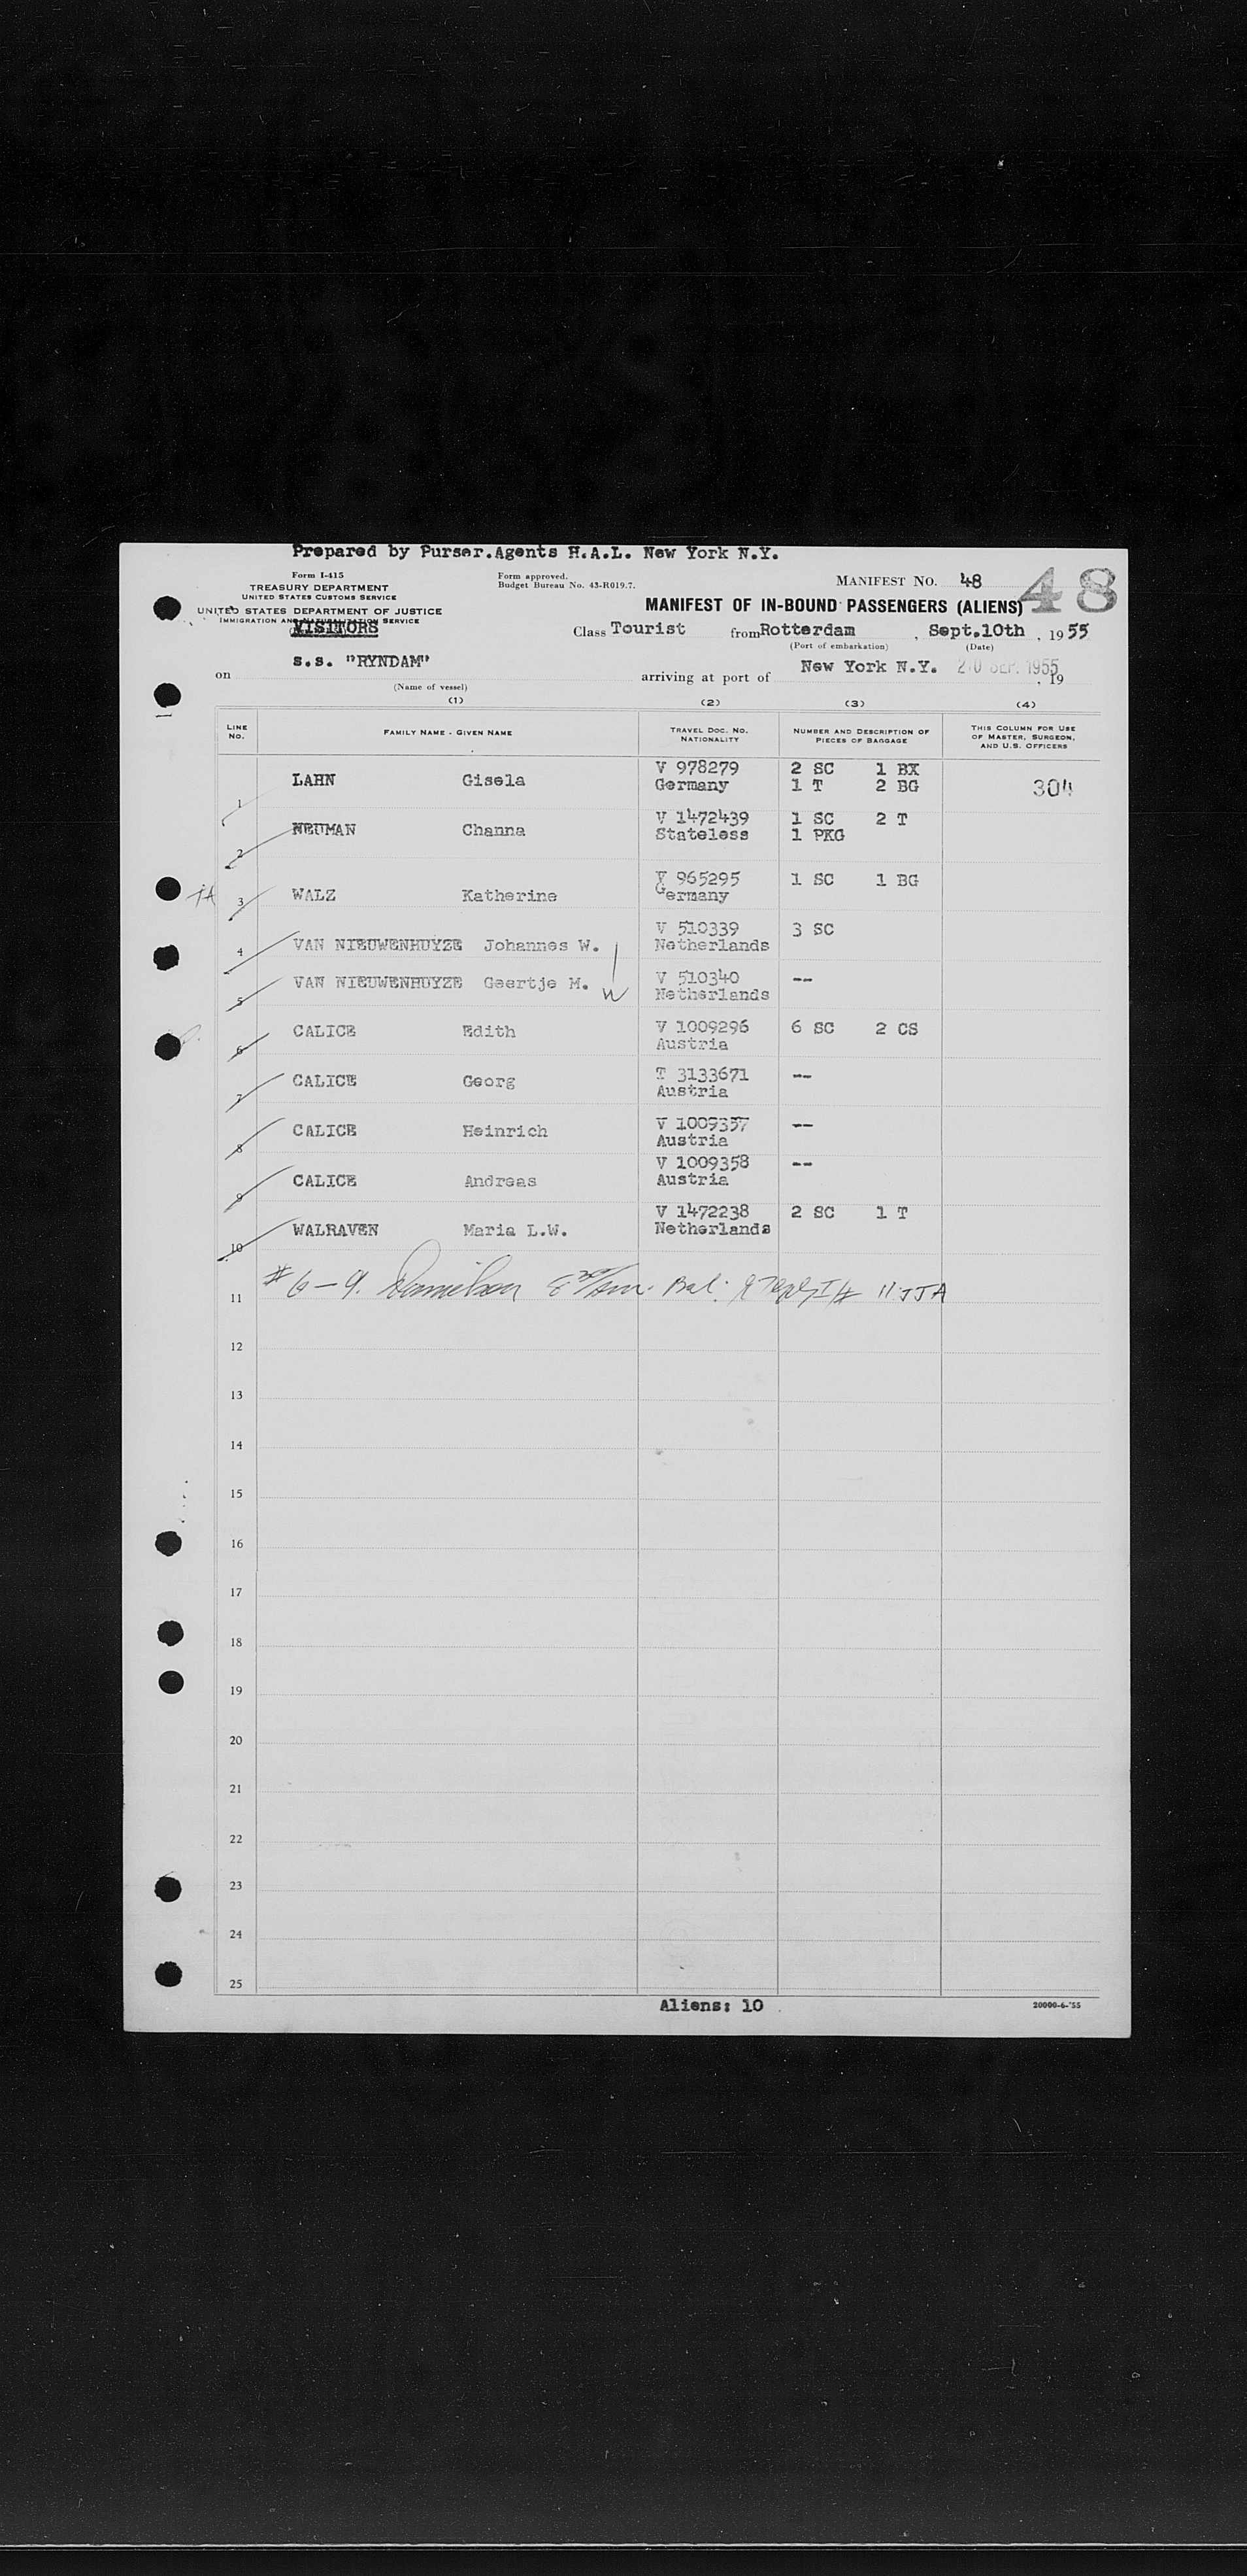 Prepared by Purser.Agents H.A.L. New York N.Y.
Form I-415
TREASURY DEPARTMENT
UNITED STATES CUSTOMS SERVICE
UNITED STATES DEPARTMENT OF JUSTICE
IMMIGRATION AND NATURALIZATION SERVICE
VISITORS
Form approved.
Budget Bureau No. 43-R019.7.
MANIFEST NO. 48
48
MANIFEST OF IN-BOUND PASSENGERS (ALIENS)
Class Tourist from Rotterdam , Sept.10th , 19 55
(Port of embarkation) (Date)
on s.s. "RYNDAM" arriving at port of New York N.Y. 20 SEP. 1955 , 19
(Name of vessel)
(1) (2) (3) (4)
LINE NO. FAMILY NAME - GIVEN NAME TRAVEL DOC. NO. NATIONALITY NUMBER AND DESCRIPTION OF PIECES OF BAGGAGE THIS COLUMN FOR USE OF MASTER, SURGEON, AND U.S. OFFICERS
1 LAHN Gisela V 978279 Germany 2 SC 1 BX 1 T 2 BG 304
2 NEUMAN Channa V 1472439 Stateless 1 SC 2 T 1 PKG
3 WALZ Katherine V 965295 Germany 1 SC 1 BG
4 VAN NIEUWENHUYZE Johannes W. V 510339 Netherlands 3 SC
5 VAN NIEUWENHUYZE Geertje M. V 510340 Netherlands --
6 CALICE Edith V 1009296 Austria 6 SC 2 CS
7 CALICE Georg T 3133671 Austria --
8 CALICE Heinrich V 1009357 Austria --
9 CALICE Andreas V 1009358 Austria --
10 WALRAVEN Maria L.W. V 1472238 Netherlands 2 SC 1 T
# 6-9. Bal: JJA
11
12
13
14
15
16
17
18
19
20
21
22
23
24
25
Aliens: 10
20000-6-'55